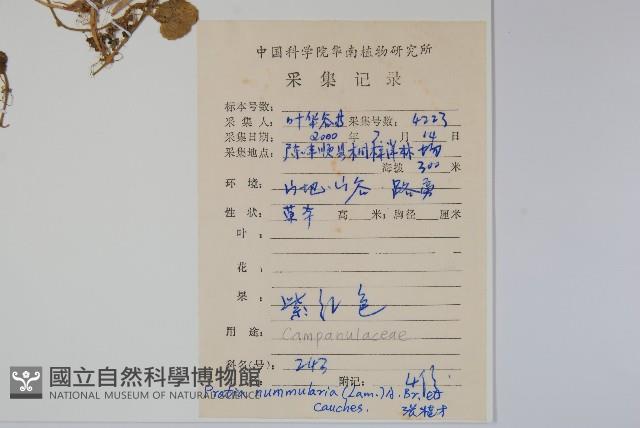 中国科学院华南植物研究所
采集记录
标本号数:
采集人: 叶华谷 采集号数: 4223
采集日期: 2000 年 7 月 14 日
采集地点: 丰顺县桐梓洋林场
海拔 300 米
环境: 山地·山谷 路旁
性状: 草本 高 米; 胸径 厘米
叶:
花:
果: 紫红色
用途: Campanulaceae
科名(号): 243
名: 附记: 4份
Pratia nummularia (Lam.) A. Br. et
Cauches. 张桂才
國立自然科學博物館
NATIONAL MUSEUM OF NATURAL SCIENCE